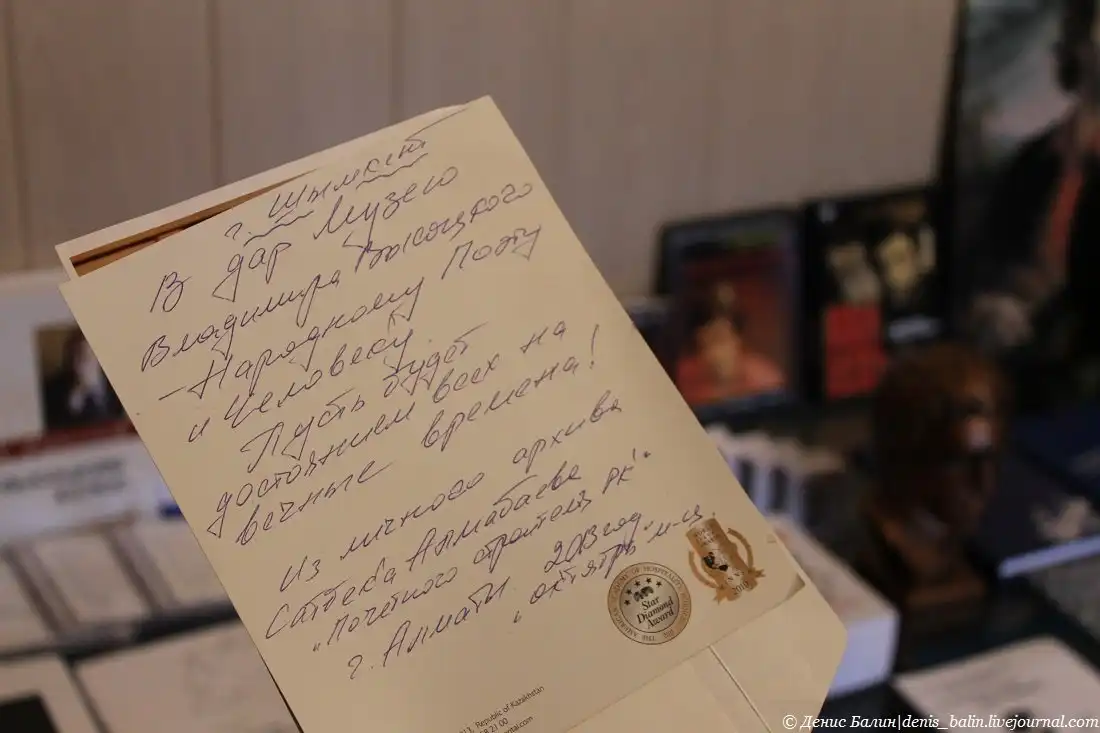 г. Шымкент
В дар Музею
Владимира Высоцкого
— Народному Поэту
и Человеку.
Пусть будет
достоянием всех на
вечные времена!
Из личного архива
Сатбека Алмабаева
"Почетного строителя РК".
г. Алматы. 2013 год.
"октябрь" м-ц.
Star
Diamond
Award
Republic of Kazakhstan
© Денис Балин|denis_balin.livejournal.com